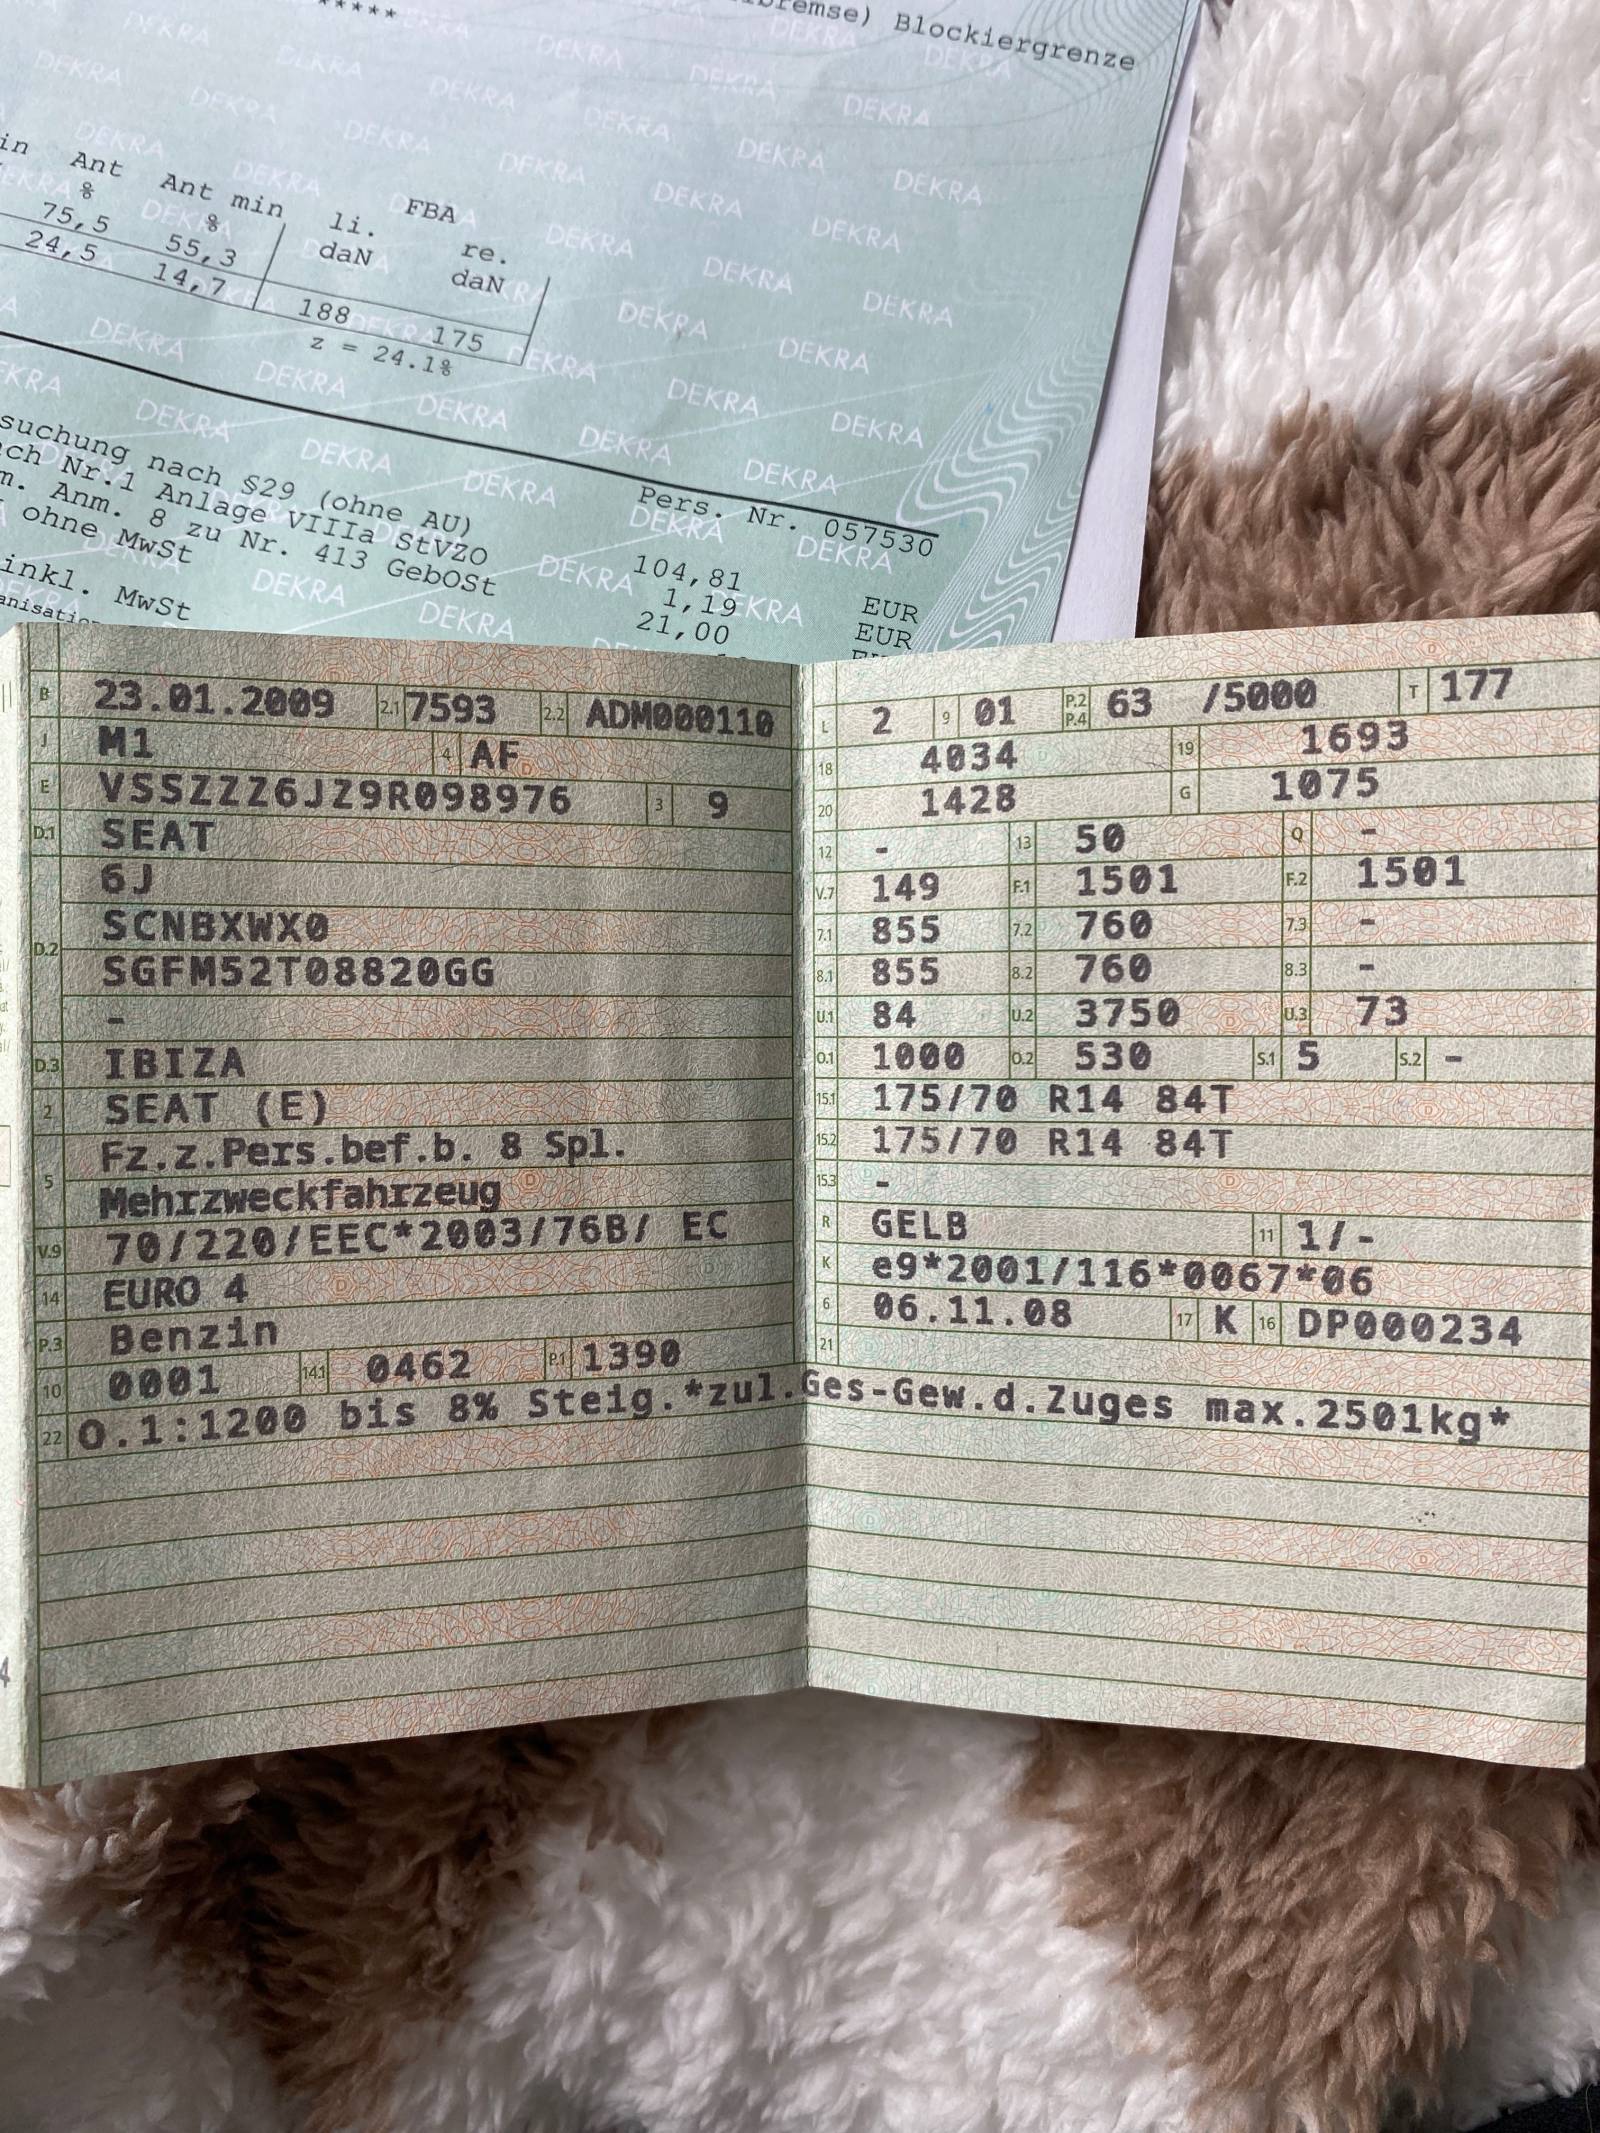 bremse) Blockiergrenze
*****
in Ant Ant min FBA
% % li. re.
75,5 55,3 daN daN
24,5 14,7 188 175
z = 24.1%
suchung nach §29 (ohne AU) Pers. Nr. 057530
ach Nr.1 Anlage VIIIa StVZO 104,81 EUR
m. Anm. 8 zu Nr. 413 GebOSt 1,19 EUR
ohne MwSt 21,00
inkl. MwSt
B 23.01.2009 2.1 7593 2.2 ADM000110
J M1 4 AF
E VSSZZZ6JZ9R098976 3 9
D.1 SEAT
6J
D.2 SCNBXWX0
SGFM52T08820GG
-
D.3 IBIZA
2 SEAT (E)
5 Fz.z.Pers.bef.b. 8 Spl.
Mehrzweckfahrzeug
V.9 70/220/EEC*2003/76B/ EC
14 EURO 4
P.3 Benzin
10 0001 14.1 0462 P.1 1390
22 O.1:1200 bis 8% Steig.*zul.Ges-Gew.d.Zuges max.2501kg*
L 2 9 01 P.2 P.4 63 /5000 T 177
18 4034 19 1693
20 1428 G 1075
12 - 13 50 Q -
V.7 149 F.1 1501 F.2 1501
7.1 855 7.2 760 7.3 -
8.1 855 8.2 760 8.3 -
U.1 84 U.2 3750 U.3 73
O.1 1000 O.2 530 S.1 5 S.2 -
15.1 175/70 R14 84T
15.2 175/70 R14 84T
15.3 -
R GELB 11 1/-
K e9*2001/116*0067*06
6 06.11.08 17 K 16 DP000234
21